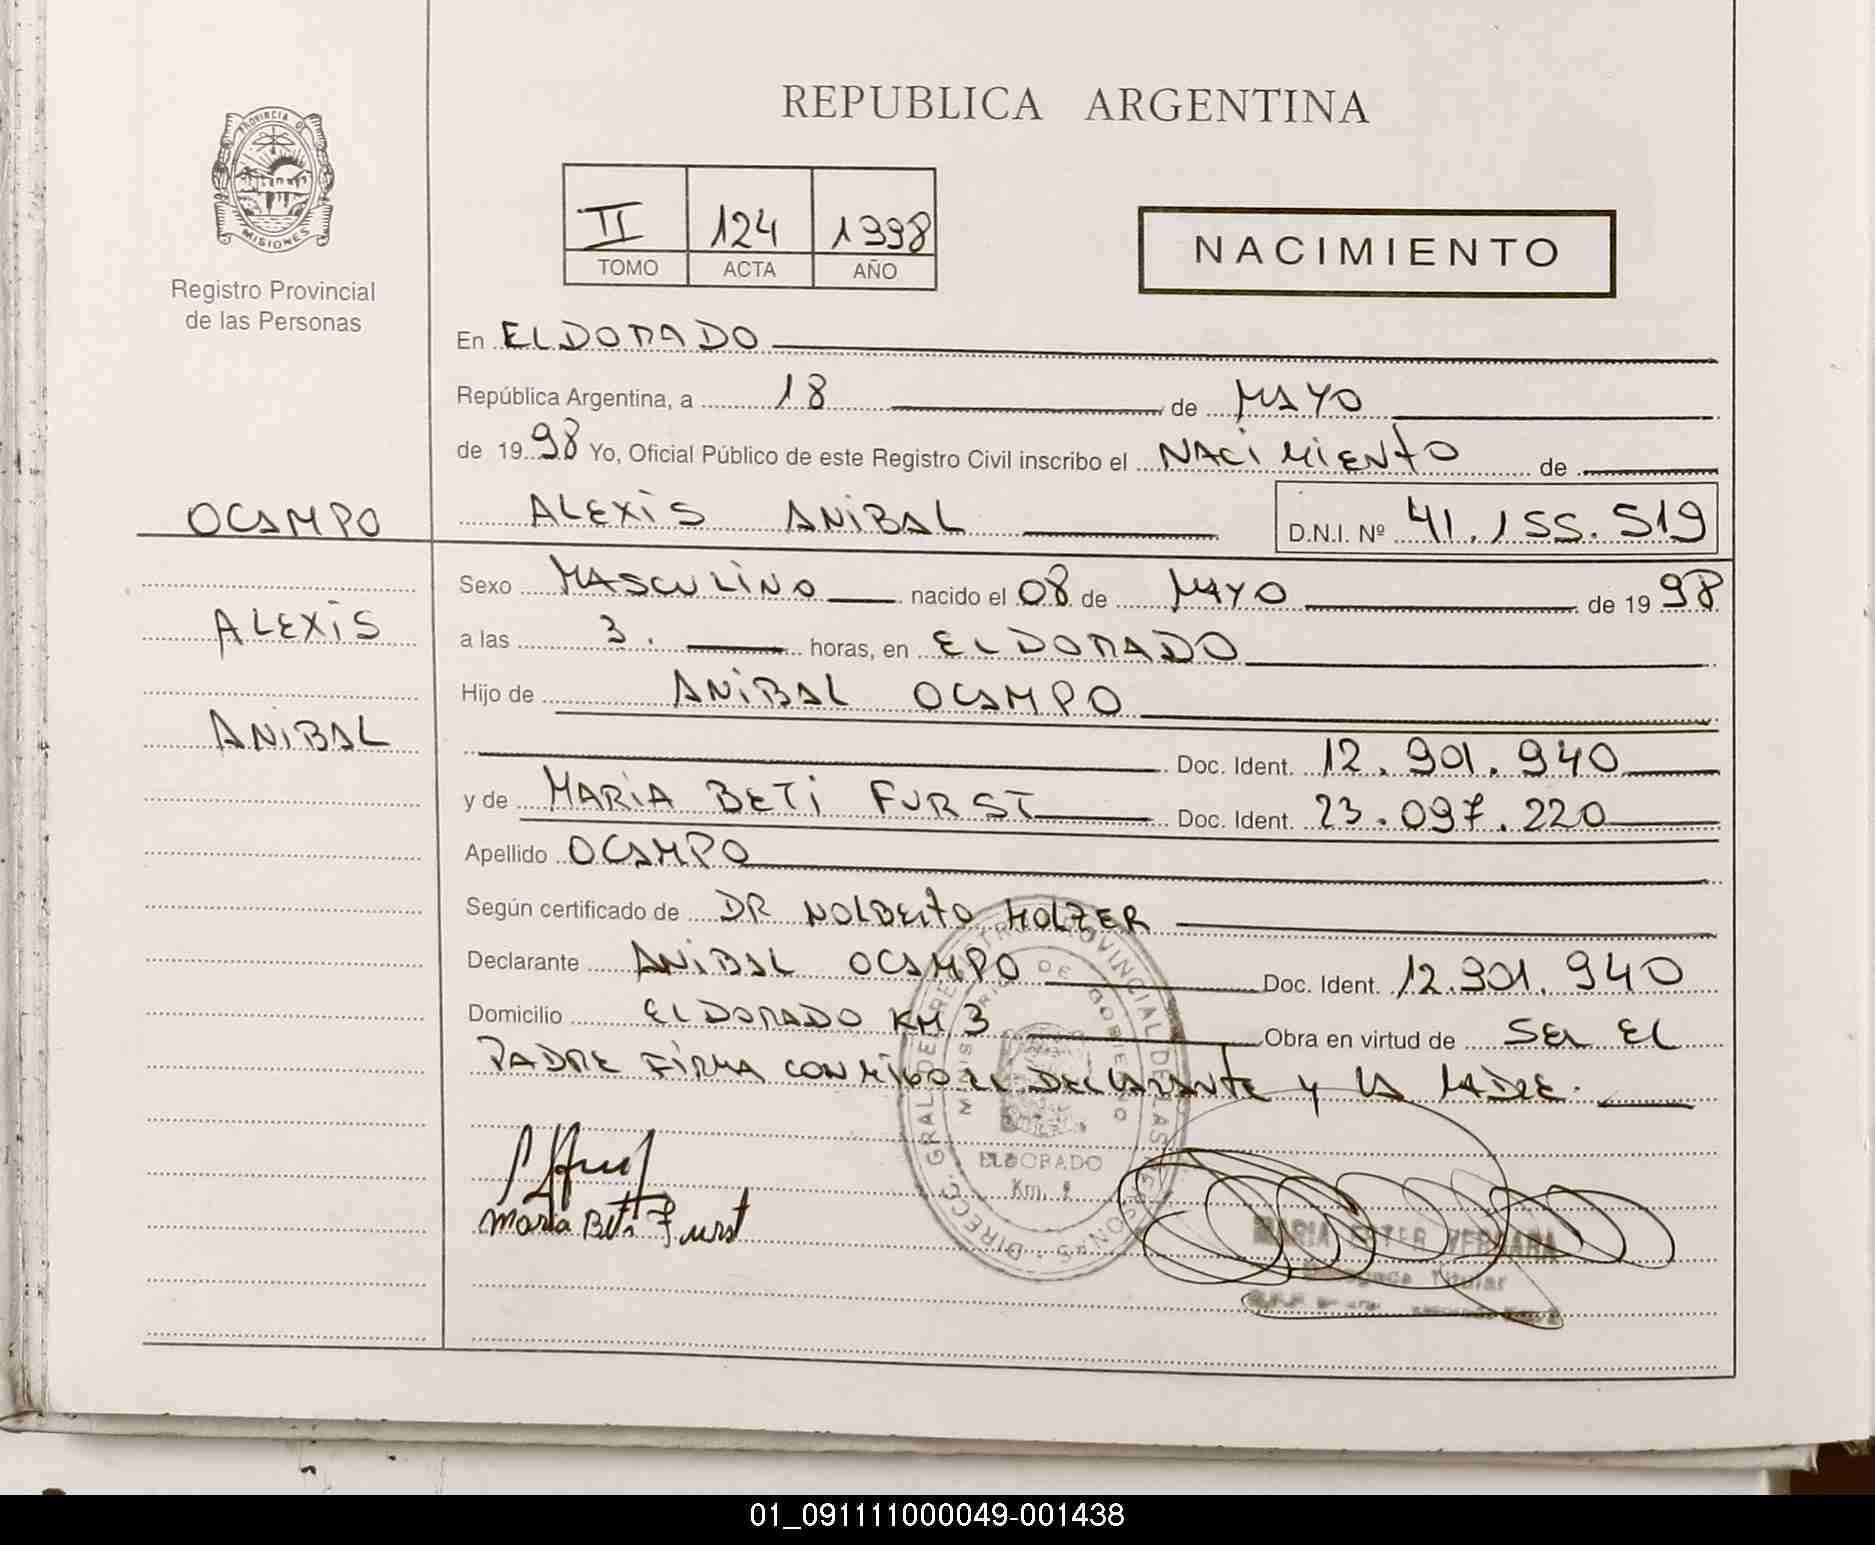 REPUBLICA ARGENTINA
PROVINCIA DE
MISIONES
Registro Provincial
de las Personas
II 124 1998
TOMO ACTA AÑO
NACIMIENTO
En ELDORADO
República Argentina, a 18 de MAYO
de 1998 Yo, Oficial Público de este Registro Civil inscribo el NACIMIENTO de
OCAMPO
ALEXIS
ANIBAL
ALEXIS ANIBAL D.N.I. Nº 41.155.519
Sexo MASCULINO nacido el 08 de MAYO de 1998
a las 3. horas, en ELDORADO
Hijo de ANIBAL OCAMPO
Doc. Ident. 12.901.940
y de MARIA BETI FURST Doc. Ident. 23.097.220
Apellido OCAMPO
Según certificado de DR NOLBERTO HOLZER
Declarante ANIBAL OCAMPO Doc. Ident. 12.901.940
Domicilio ELDORADO KM 3 Obra en virtud de SER EL
PADRE FIRMA CONMIGO EL DECLARANTE Y LA MADRE.
DIRECC. GRAL. DE REGISTRO PROVINCIAL DE LAS PERSONAS
MINISTERIO DE GOBIERNO
ELDORADO
Km.
Maria Beti Furst
MARIA ESTER VERGARA
Titular
01_091111000049-001438